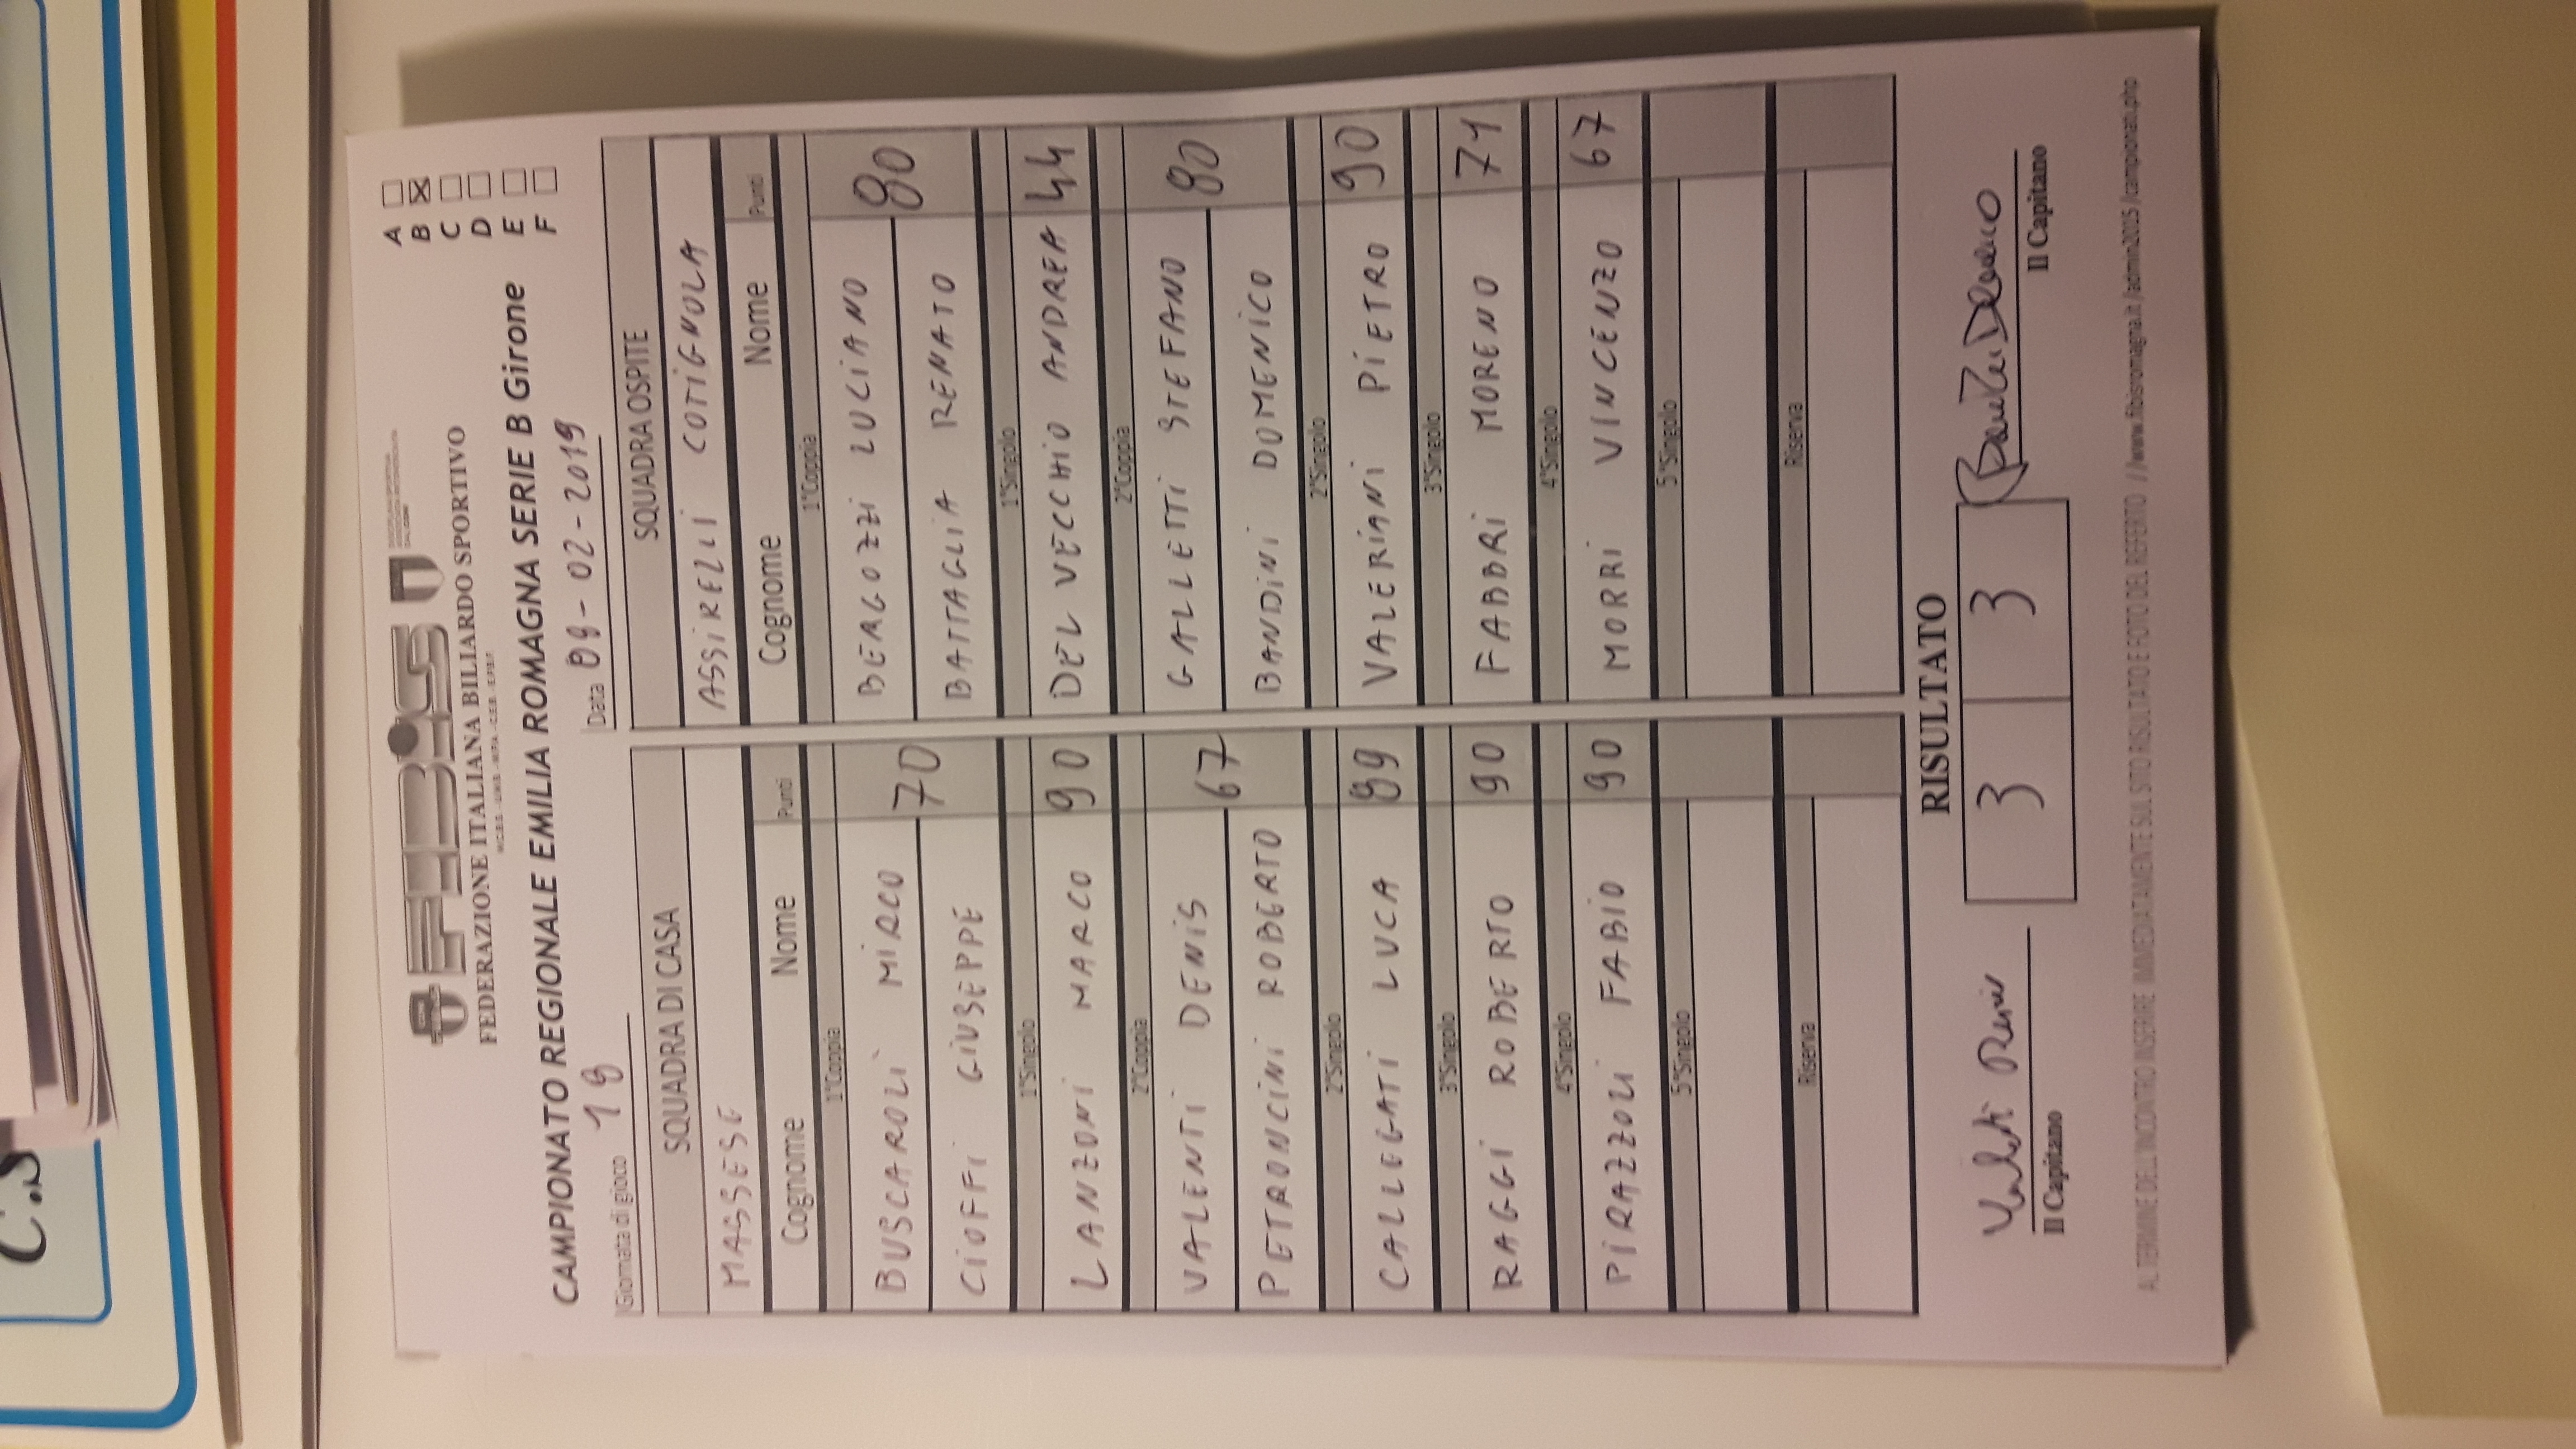 FIBiS
FEDERAZIONE ITALIANA BILIARDO SPORTIVO
CAMPIONATO REGIONALE EMILIA ROMAGNA SERIE B Girone
A
B
C
D
E
F
Giornata di gioco 18
Data 09-02-2019
SQUADRA DI CASA SQUADRA OSPITE
MASSESE ASSIRELLI COTIGNOLA
Cognome Nome Punti Cognome Nome Punti
1°Coppia 1°Coppia
BUSCAROLI MIRCO 70 BERGOZZI LUCIANO 80
CIOFFI GIUSEPPE BATTAGLIA RENATO
1°Singolo 1°Singolo
LANZONI MARCO 90 DEL VECCHIO ANDREA 44
2°Coppia 2°Coppia
VALENTI DENIS 67 GALLETTI STEFANO 80
PETRONCINI ROBERTO BANDINI DOMENICO
2°Singolo 2°Singolo
CALLEGATI LUCA 89 VALERIANI PIETRO 90
3°Singolo 3°Singolo
RAGGI ROBERTO 90 FABBRI MORENO 71
4°Singolo 4°Singolo
PIRAZZOLI FABIO 90 MORRI VINCENZO 67
5°Singolo 5°Singolo
Riserva Riserva
RISULTATO
3 3
Il Capitano Il Capitano
AL TERMINE DELL'INCONTRO INSERIRE IMMEDIATAMENTE SUL SITO RISULTATO E FOTO DEL REFERTO //www.fibisromagna.it/admin2015/campionati.php
C.S